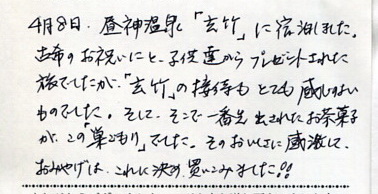 4月8日、昼神温泉「玄竹」に宿泊しました。
古希のお祝いにと、子供達からプレゼントされた
旅でしたが、「玄竹」の接待もとても感じのよい
ものでした。そして、そこで一番先出されたお茶菓子
が、この「巣ごもり」でした。そのおいしさに感激して、
おみやげは、これに決め、買いこみました!!